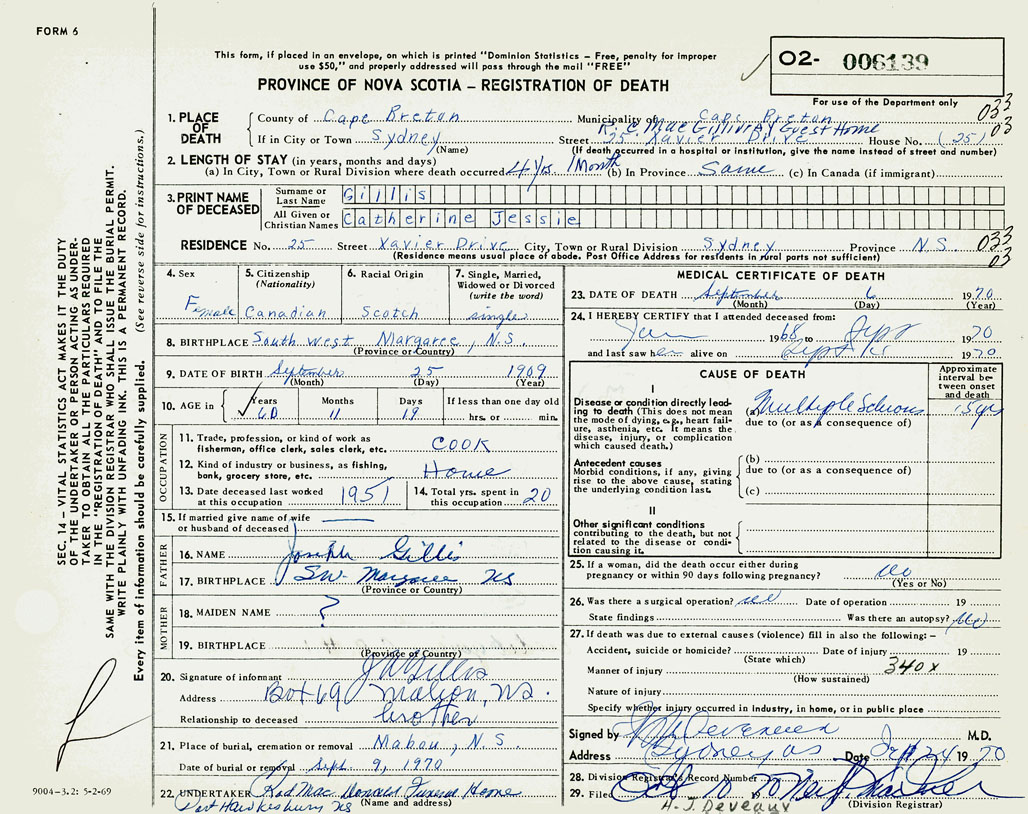 FORM 6
This form, if placed in an envelope, on which is printed "Dominion Statistics – Free, penalty for improper
use $50," and properly addressed will pass through the mail "FREE"
PROVINCE OF NOVA SCOTIA – REGISTRATION OF DEATH
O2- 006139
For use of the Department only
033
03
SEC. 14 – VITAL STATISTICS ACT MAKES IT THE DUTY
OF THE UNDERTAKER OR PERSON ACTING AS UNDER-
TAKER TO OBTAIN ALL THE PARTICULARS REQUIRED
IN THE "REGISTRATION OF DEATH" AND TO FILE THE
SAME WITH THE DIVISION REGISTRAR WHO SHALL ISSUE THE BURIAL PERMIT.
WRITE PLAINLY WITH UNFADING INK. THIS IS A PERMANENT RECORD.
Every item of information should be carefully supplied. (See reverse side for instructions.)
1. PLACE OF DEATH
County of Cape Breton Municipality of Cape Breton
Guest Home
If in City or Town Sydney Street 25 Xavier Drive House No. (25)
(Name) (If death occurred in a hospital or institution, give the name instead of street and number)
2. LENGTH OF STAY (in years, months and days)
(a) In City, Town or Rural Division where death occurred 4 yrs. 1 Month (b) In Province Same (c) In Canada (if immigrant)
3. PRINT NAME OF DECEASED
Surname or Last Name Gillis
All Given or Christian Names Catherine Jessie
RESIDENCE No. 25 Street Xavier Drive City, Town or Rural Division Sydney Province N.S. 033
(Residence means usual place of abode. Post Office Address for residents in rural parts not sufficient) 03
4. Sex Female
5. Citizenship (Nationality) Canadian
6. Racial Origin Scotch
7. Single, Married, Widowed or Divorced (write the word) single
8. BIRTHPLACE South West Margaree, N.S.
(Province or Country)
9. DATE OF BIRTH September 25 1909
(Month) (Day) (Year)
10. AGE in Years 60 Months 11 Days 19 If less than one day old hrs. or min.
OCCUPATION
11. Trade, profession, or kind of work as
fisherman, office clerk, sales clerk, etc. COOK
12. Kind of industry or business, as fishing,
bank, grocery store, etc. Home
13. Date deceased last worked at this occupation 1951
14. Total yrs. spent in this occupation 20
15. If married give name of wife
or husband of deceased
FATHER
16. NAME Joseph Gillis
17. BIRTHPLACE SW- Margaree NS
(Province or Country)
MOTHER
18. MAIDEN NAME ?
19. BIRTHPLACE
(Province or Country)
20. Signature of informant J A Gillis
Address Box 69 Mabou, N.S.
Relationship to deceased brother
21. Place of burial, cremation or removal Mabou, N.S.
Date of burial or removal Sept. 9, 1970
22. UNDERTAKER Mac Donald Funeral Home
Port Hawkesbury NS (Name and address)
9004-3.2: 5-2-69
MEDICAL CERTIFICATE OF DEATH
23. DATE OF DEATH September 6 1970
(Month) (Day) (Year)
24. I HEREBY CERTIFY that I attended deceased from:
1968 to Sept 1970
and last saw her alive on Sept 1970
CAUSE OF DEATH
Approximate interval between onset and death
I
Disease or condition directly lead-
ing to death (This does not mean
the mode of dying, e.g., heart fail-
ure, asthenia, etc. It means the
disease, injury, or complication
which caused death.)
(a) Multiple
due to (or as a consequence of)
Antecedent causes
Morbid conditions, if any, giving
rise to the above cause, stating
the underlying condition last.
(b)
due to (or as a consequence of)
(c)
II
Other significant conditions
contributing to the death, but not
related to the disease or condi-
tion causing it.
25. If a woman, did the death occur either during
pregnancy or within 90 days following pregnancy? No
(Yes or No)
26. Was there a surgical operation? no Date of operation 19
State findings Was there an autopsy? No
27. If death was due to external causes (violence) fill in also the following: –
Accident, suicide or homicide? Date of injury 19
(State which)
Manner of injury 340x
(How sustained)
Nature of injury
Specify whether injury occurred in industry, in home, or in public place
Signed by Deveaux M.D.
Address Sydney NS Date Sept 24 1970
28. Division Registrar's Record Number
29. Filed 19 70
(Division Registrar)
H. J. Deveaux